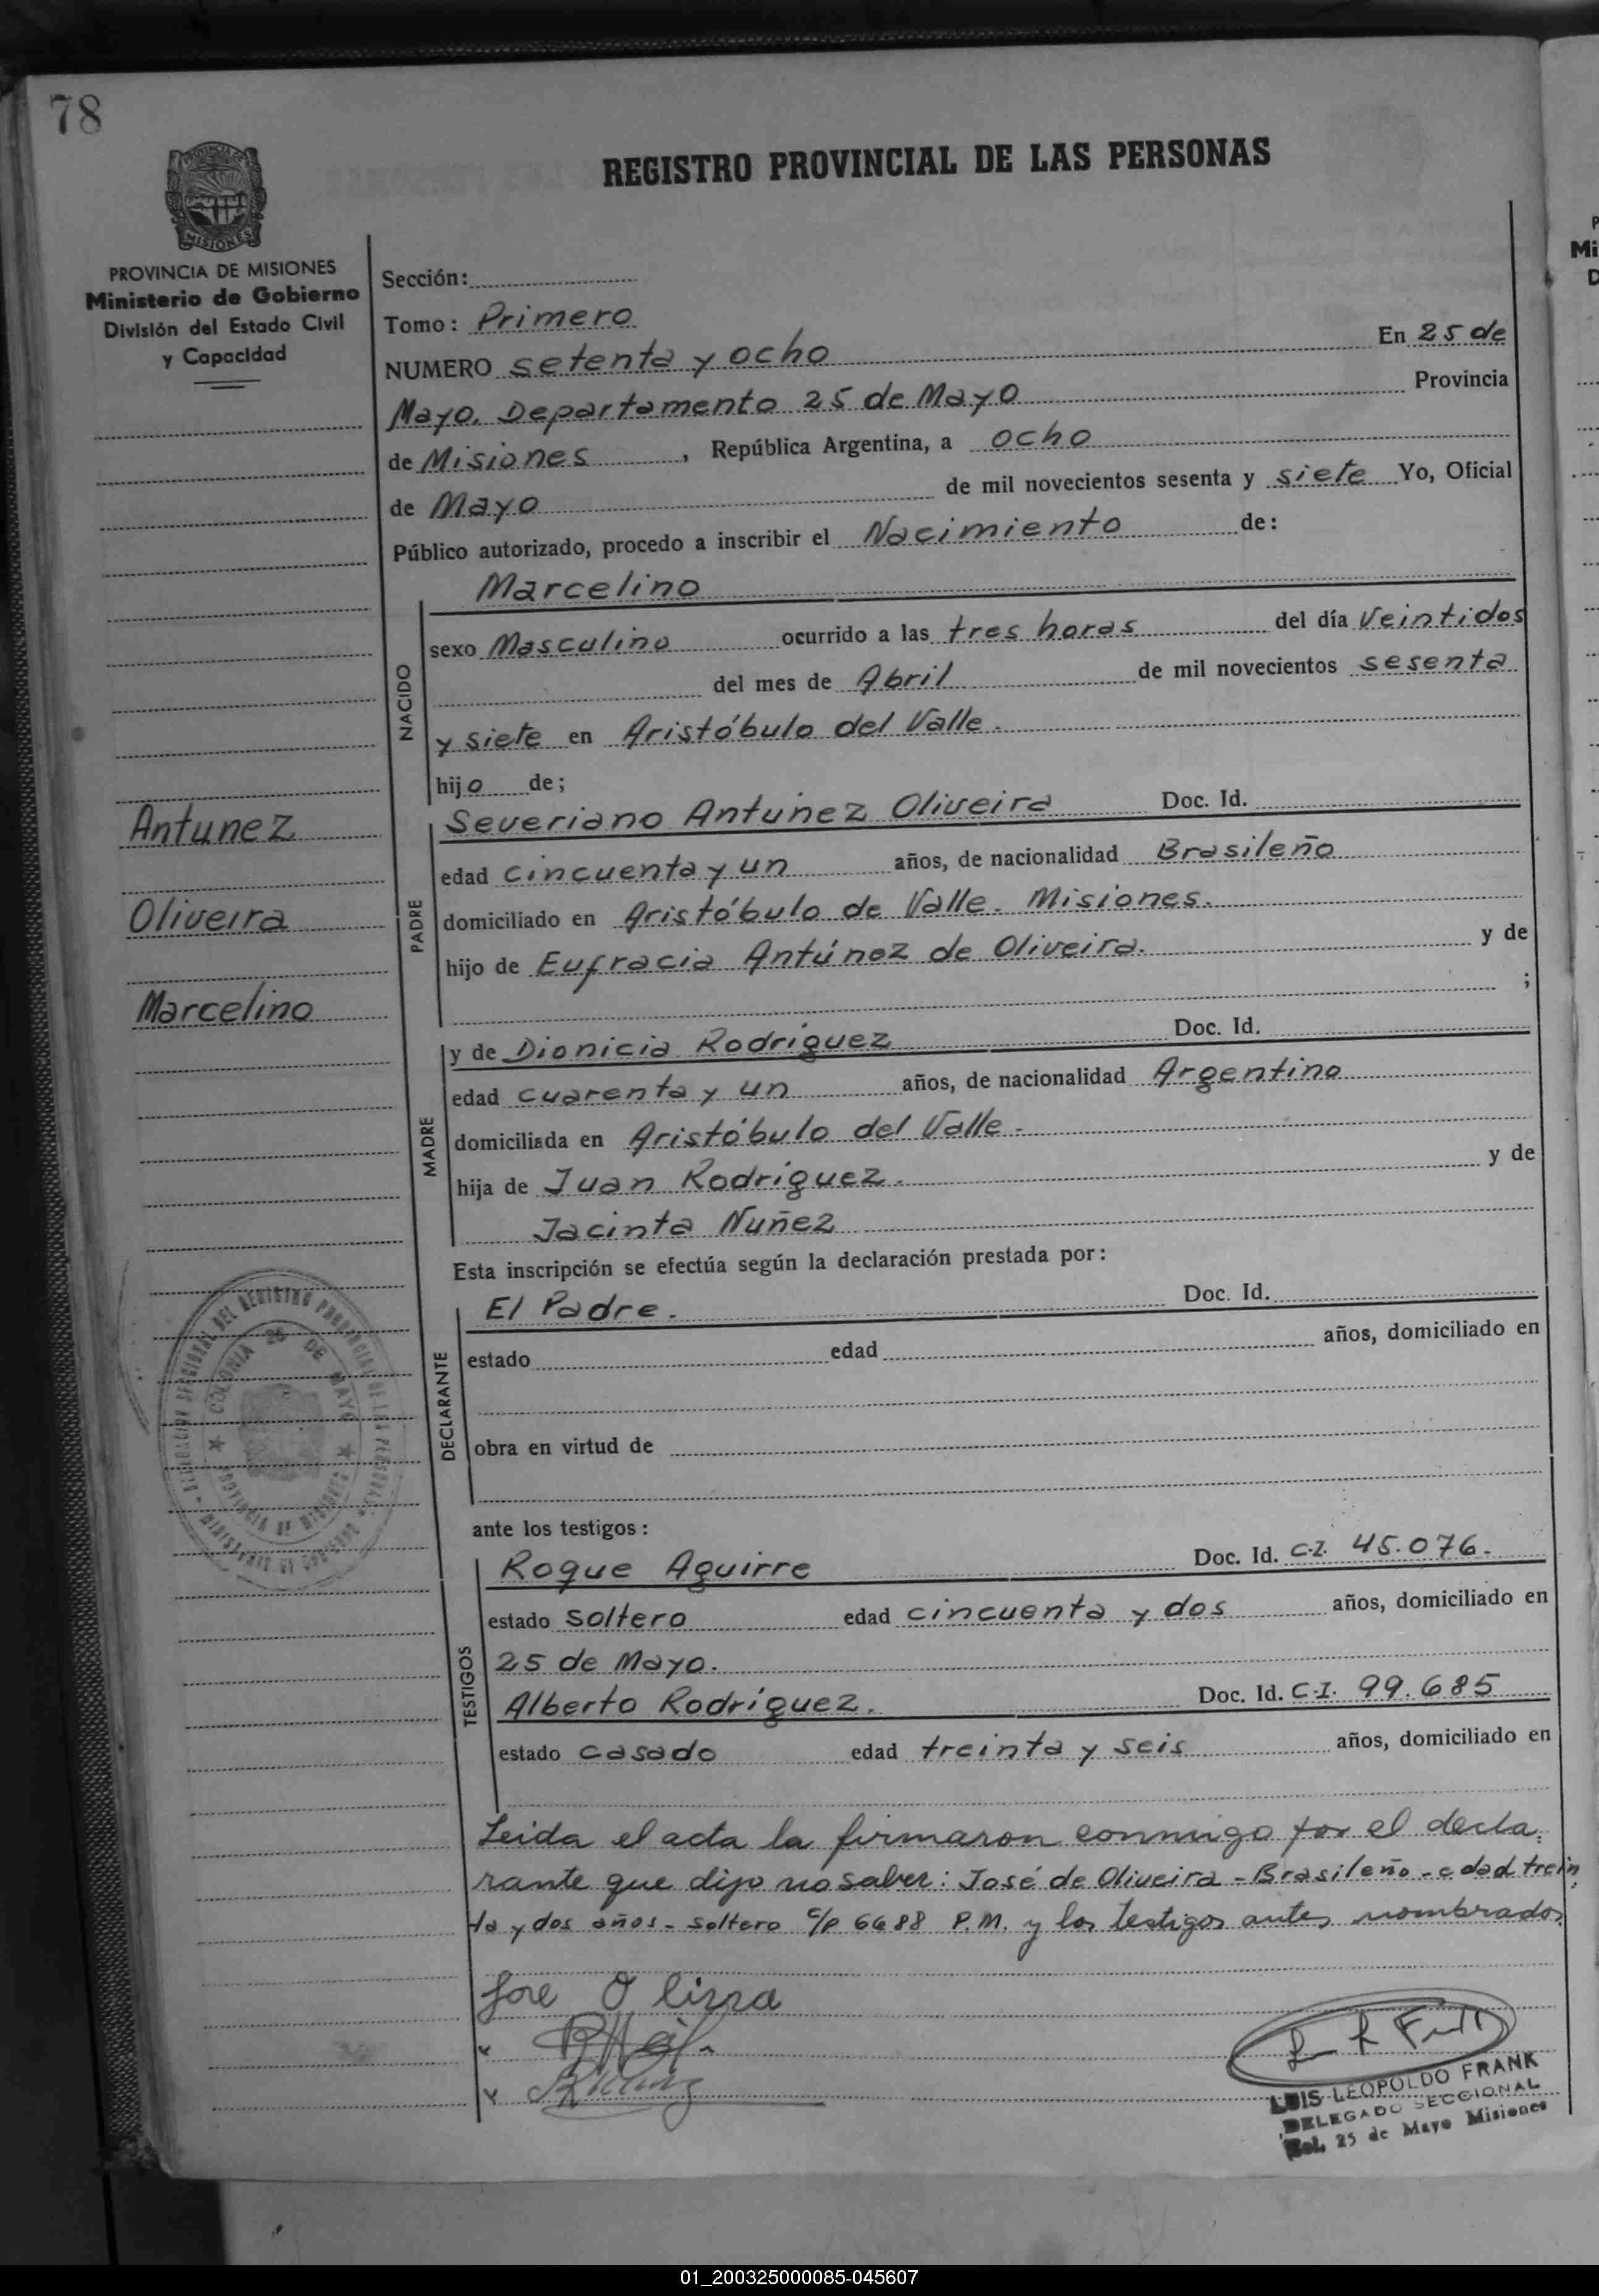 78
REGISTRO PROVINCIAL DE LAS PERSONAS
PROVINCIA DE MISIONES
Ministerio de Gobierno
División del Estado Civil
y Capacidad
Sección:
Tomo: Primero
NUMERO setenta y ocho En 25 de
Mayo. Departamento 25 de Mayo Provincia
de Misiones, República Argentina, a ocho
de Mayo de mil novecientos sesenta y siete Yo, Oficial
Público autorizado, procedo a inscribir el Nacimiento de:
Marcelino
NACIDO
sexo Masculino ocurrido a las tres horas del día Veintidos
del mes de Abril de mil novecientos sesenta
y siete en Aristóbulo del Valle.
hijo de;
Antunez
Oliveira
Marcelino
PADRE
Severiano Antúnez Oliveira Doc. Id.
edad cincuenta y un años, de nacionalidad Brasileño
domiciliado en Aristóbulo de Valle. Misiones.
hijo de Eufracia Antúnez de Oliveira. y de
;
MADRE
y de Dionicia Rodríguez Doc. Id.
edad cuarenta y un años, de nacionalidad Argentina
domiciliada en Aristóbulo del Valle.
hija de Juan Rodríguez. y de
Jacinta Nuñez
Esta inscripción se efectúa según la declaración prestada por:
DECLARANTE
El Padre. Doc. Id.
estado edad años, domiciliado en
obra en virtud de
ante los testigos:
TESTIGOS
Roque Aguirre Doc. Id. C.I. 45.076.
estado soltero edad cincuenta y dos años, domiciliado en
25 de Mayo.
Alberto Rodríguez. Doc. Id. C.I. 99.685
estado casado edad treinta y seis años, domiciliado en
Leida el acta la firmaron conmigo por el decla
rante que dijo no saber: José de Oliveira - Brasileño - edad trein
ta y dos años - soltero c/p 6688 P.M. y los testigos antes nombrados
COLONIA 25 DE MAYO
LUIS LEOPOLDO FRANK
DELEGADO SECCIONAL
Col. 25 de Mayo Misiones
01_200325000085-045607